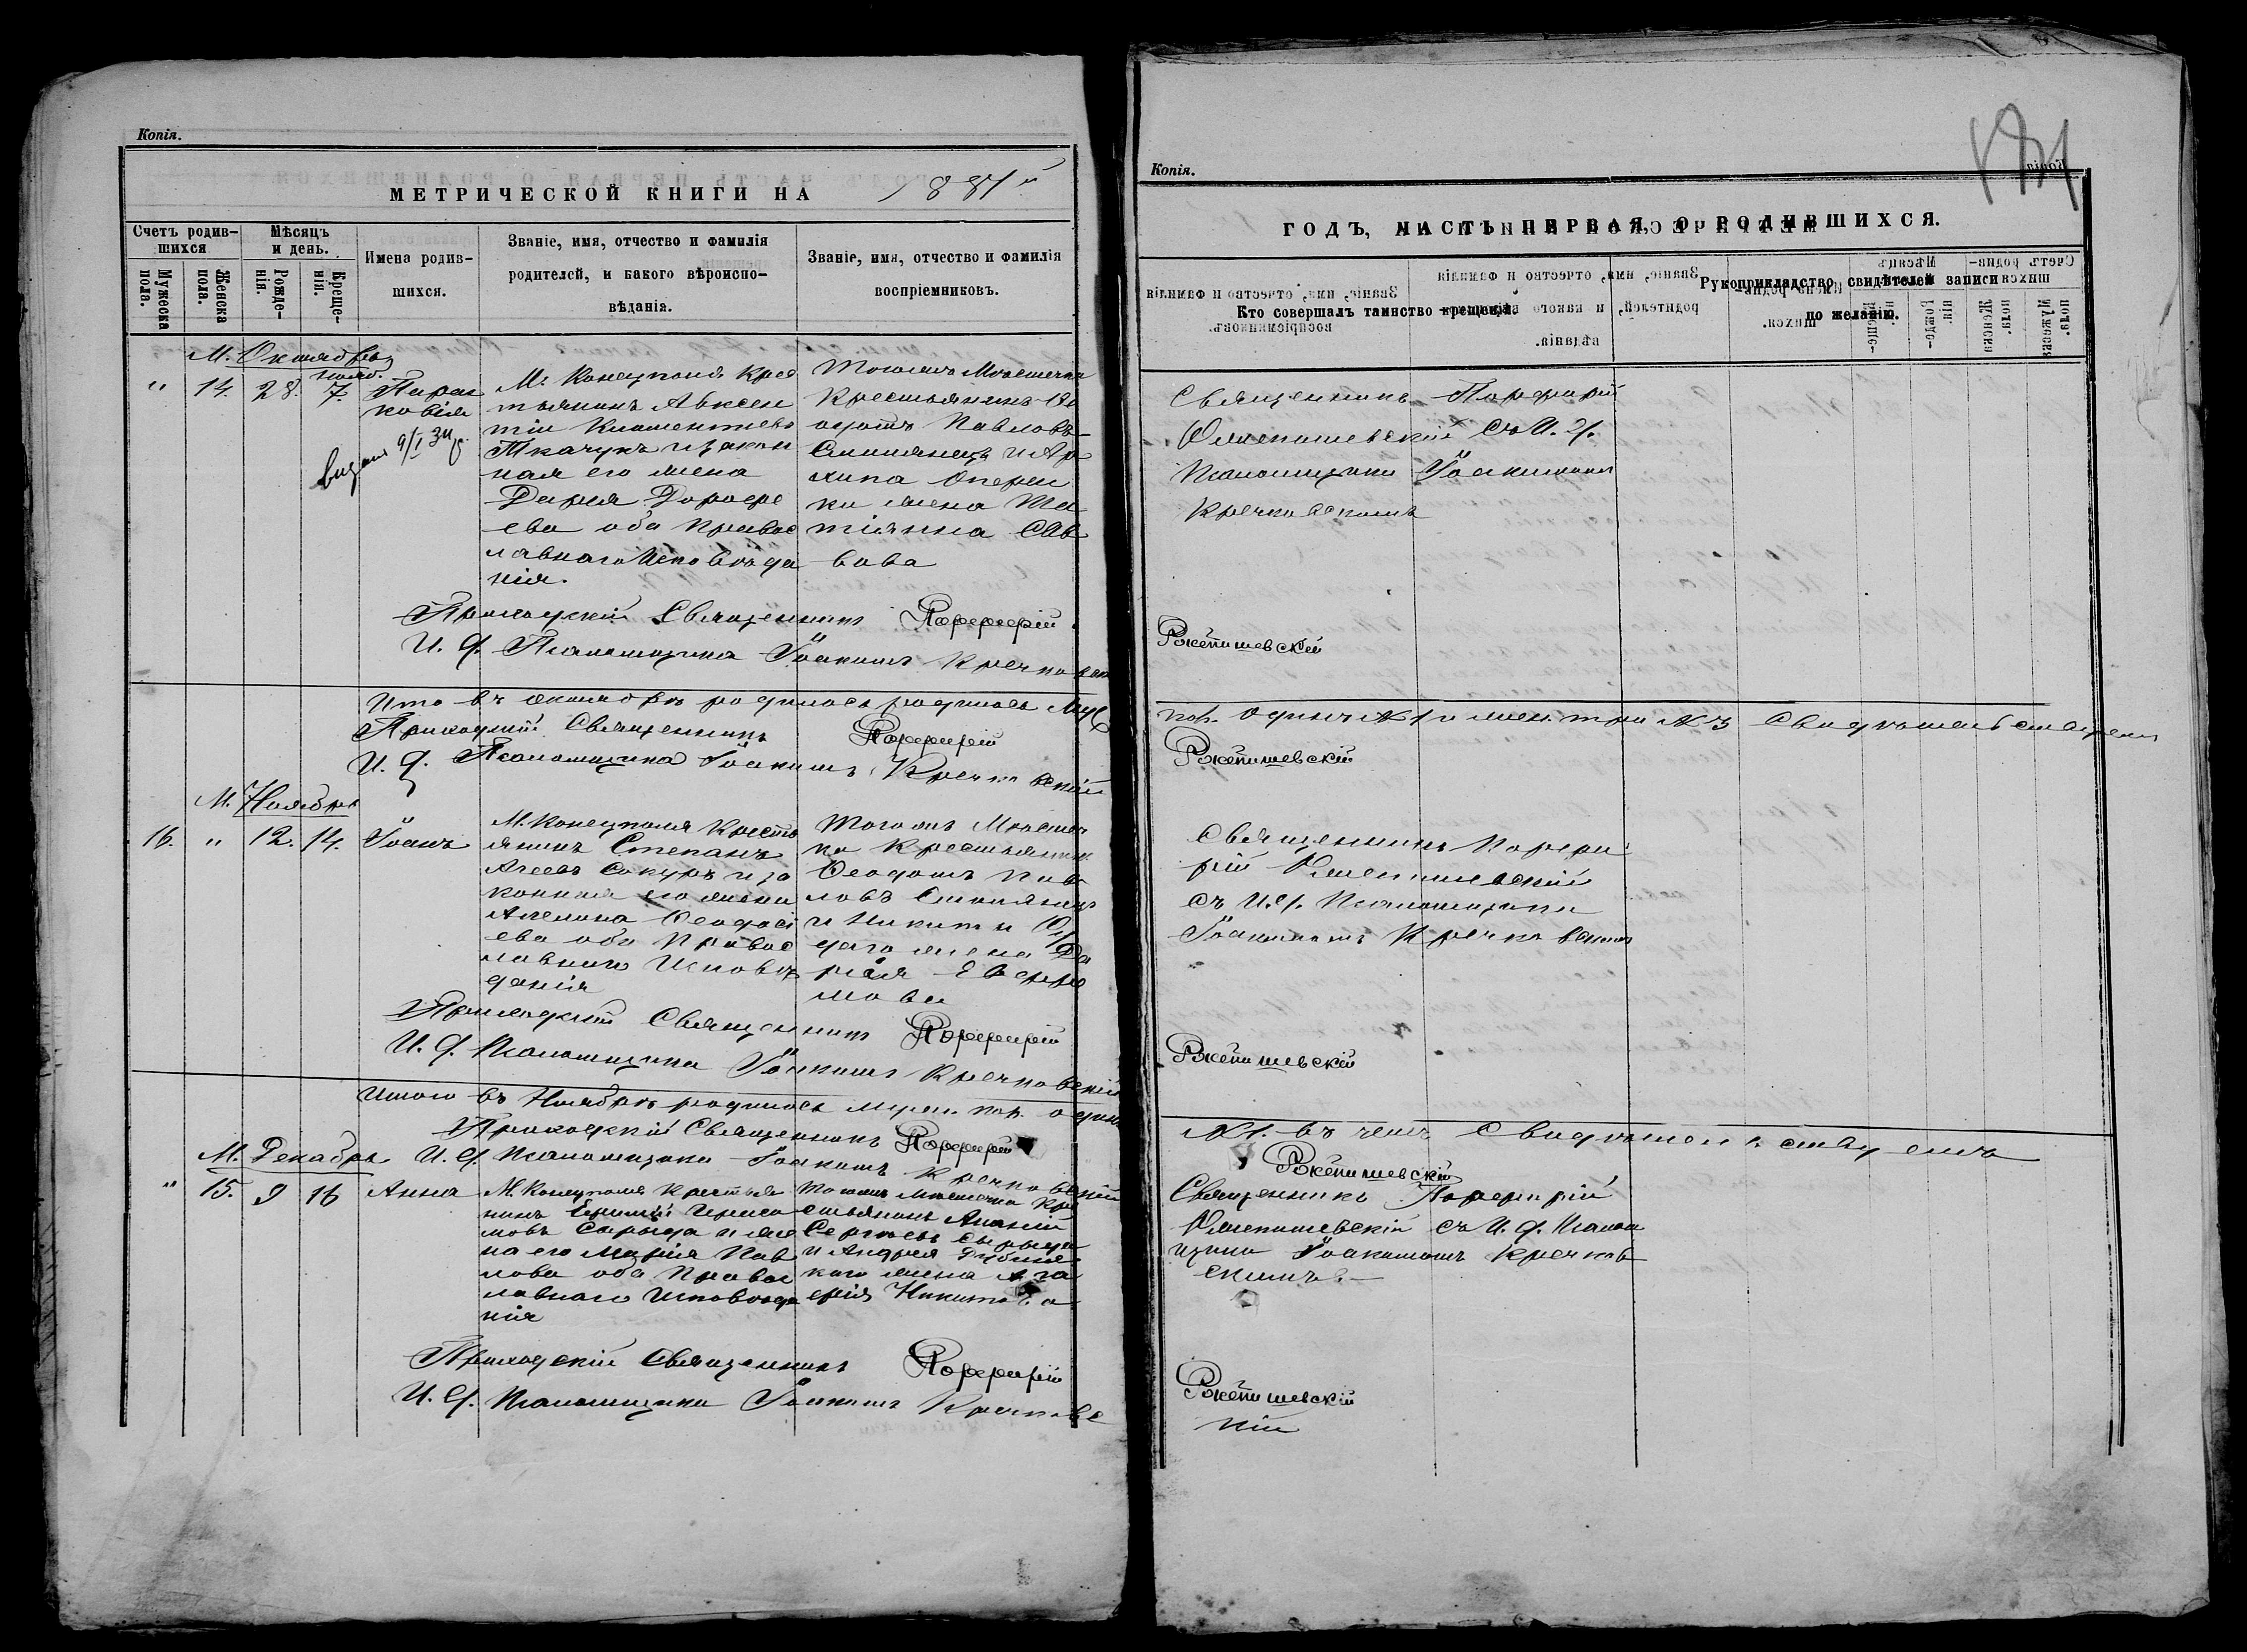 Копія.
МЕТРИЧЕСКОЙ КНИГИ НА 1881й
Счетъ родив-
шихся
Мужеска
пола.
Женска
пола.
Мѣсяцъ
и день.
Рожде-
нія.
Креще-
нія.
Имена родив-
шихся.
Званіе, имя, отчество и фамилія
родителей, и какого вѣроиспо-
вѣданія.
Званіе, имя, отчество и фамилія
воспріемниковъ.
М. Октябрь
" 14. 28. 7. Парас
ковія
М. Конецполя Крес
тьянинъ Авксен
тій Климентіевъ
Ткачукъ и закон
ная его жена
Дарія Дорофе
ева оба Правос
лавнаго Исповѣда
нія.
Тогожъ Мѣстечка
Крестьянинъ Ѳе
одотъ Павловъ
и Ар
хипа
ки жена Та
тіянна Сав
вова
Приходскій Священникъ Порфирій
И. д. Псаломщика Іоакимъ Кречковскій
Итого въ октябрѣ родилось родилось Муж
Приходскій Священникъ Порфирій
И. д. Псаломщика Іоакимъ Кречковскій
М. Ноябрь
16. " 12. 14. Іоанъ
М. Конецполя Кресть
янинъ Степанъ
Агеевъ Сокуръ и за
конная его жена
Агелина Ѳеодосі
ева оба Правос
лавнаго Исповѣ
данія
Тогожъ Мѣстеч
ка Крестьянинъ
Ѳеодотъ Пав
ловъ
и Никиты
жена Да
рія Евфре
мова
Приходскій Священникъ Порфирій
И. д. Псаломщика Іоакимъ Кречковскій
Итого въ Ноябрѣ родилось Муж. пол. одинъ
Приходскій Священникъ Порфирій
М. Декабрь И. д. Псаломщика Іоакимъ Кречковскій
" 15. 9 16 Анна
М. Конецполя Крестья
нинъ
мовъ и же
на его Марія Пав
лова оба Правос
лавнаго Исповѣда
нія
Тогожъ Мѣстечка Кре
стьянинъ Ананій
Сергіевъ
и Андрея
каго жена Ага
фія Никитова
Приходскій Священникъ Порфирій
И. д. Псаломщика Іоакимъ Кречковс
Копія.
ГОДЪ, ЧАСТЬ ПЕРВАЯ, О РОДИВШИХСЯ.
Кто совершалъ таинство крещенія.
Рукоприкладство свидѣтелей записи
по желанію.
Священникъ Порфирій
Ржепишевскій съ И. д.
Псаломщика Іоакимомъ
Кречковскимъ
Ржепишевскій
пол. Одинъ №1 и жен. три №3 Свидѣтельствуемъ
Ржепишевскій
Священникъ Порфи
рій Ржепишевскій
съ И. д. Псаломщика
Іоакимомъ Кречковскимъ
Ржепишевскій
№1. въ чемъ Свидѣтельствуемъ
Ржепишевскій
Священникъ Порфирій
Ржепишевскій съ И. д. Псалом
щика Іоакимомъ Кречков
скимъ.
Ржепишевскій
кій